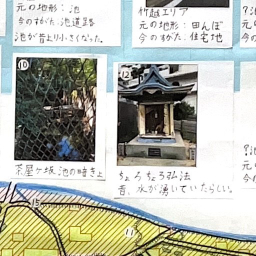 元の地形：池
今のすがた：池道路
池が昔より小さくなった。
竹越エリア
元の地形：田んぼ
今のすがた：住宅地
⑩
茶屋ヶ坂池の暗きょ
⑫
ちょろちょろ弘法
昔、水が湧いていたらしい。
15
11